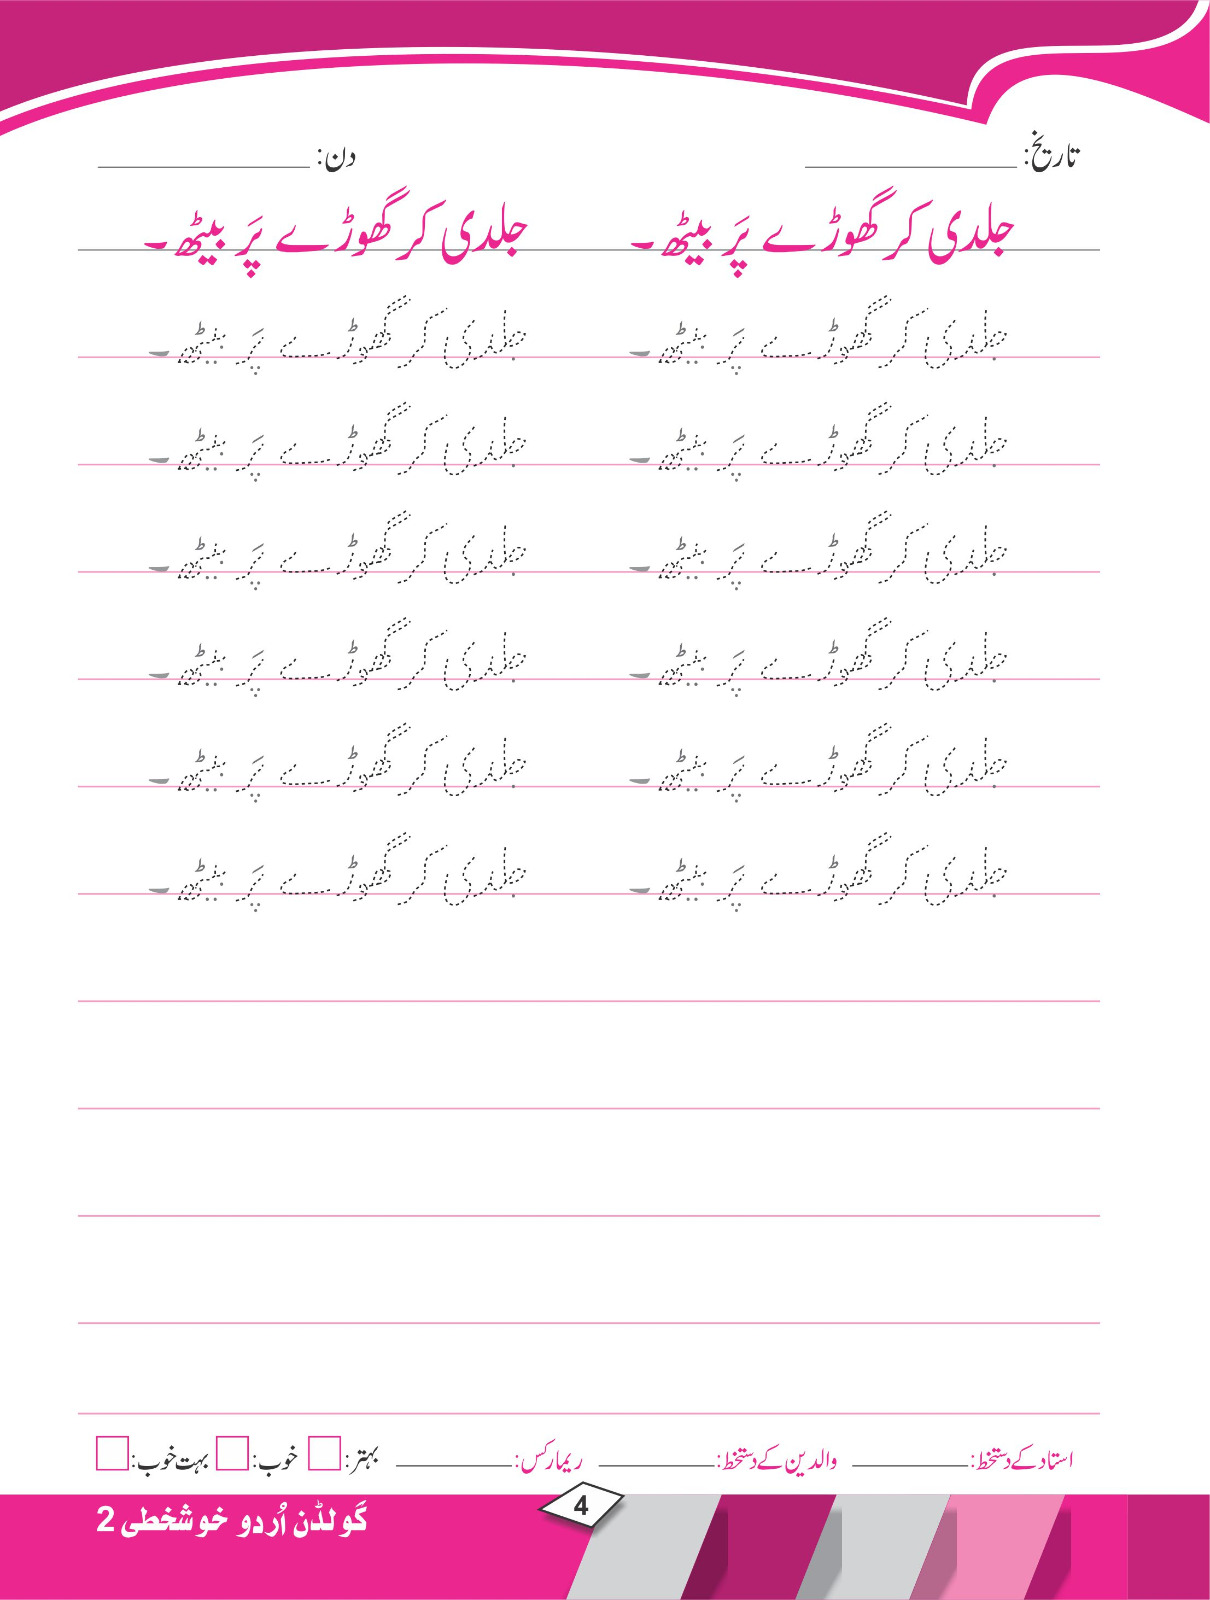 تاریخ: ____________ دن: ____________
جلدی کر گھوڑے پَر بیٹھ۔ جلدی کر گھوڑے پَر بیٹھ۔
جلدی کر گھوڑے پَر بیٹھ۔ جلدی کر گھوڑے پَر بیٹھ۔
جلدی کر گھوڑے پَر بیٹھ۔ جلدی کر گھوڑے پَر بیٹھ۔
جلدی کر گھوڑے پَر بیٹھ۔ جلدی کر گھوڑے پَر بیٹھ۔
جلدی کر گھوڑے پَر بیٹھ۔ جلدی کر گھوڑے پَر بیٹھ۔
جلدی کر گھوڑے پَر بیٹھ۔ جلدی کر گھوڑے پَر بیٹھ۔
جلدی کر گھوڑے پَر بیٹھ۔ جلدی کر گھوڑے پَر بیٹھ۔
استاد کے دستخط: ________ والدین کے دستخط: ________ ریمارکس: ________ بہتر: □ خوب: □ بہت خوب: □
4
گولڈن اُردو خوشخطی 2